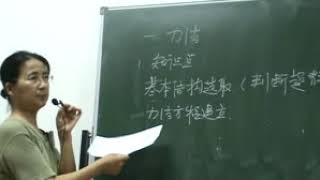 一.力法
1.知识点
基本结构选取(判断超
力法方程建立